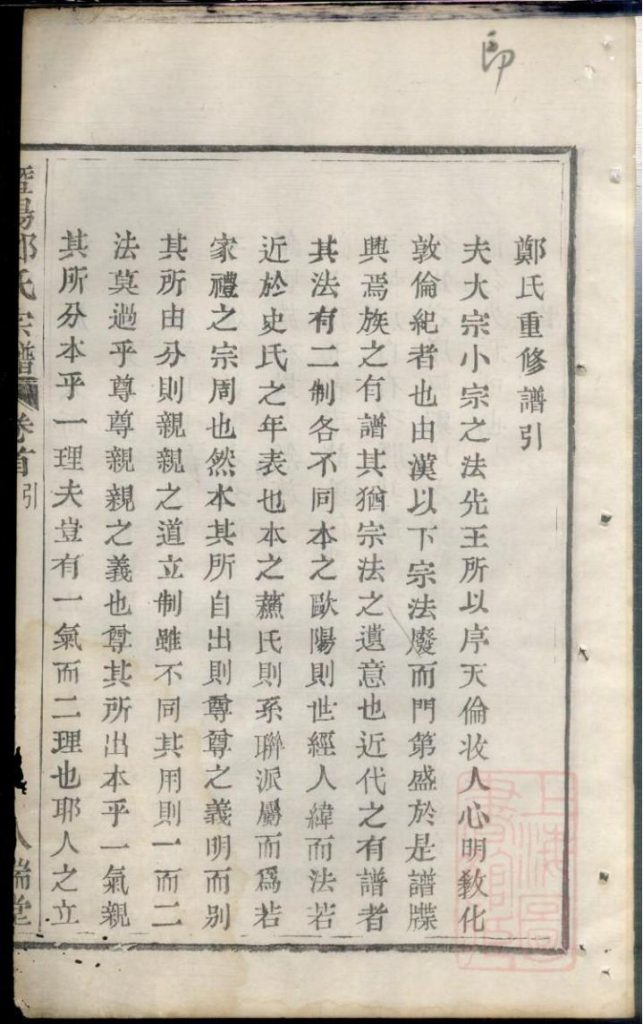 印
鄭氏重修譜引
夫大宗小宗之法先王所以序天倫收人心明敎化
敦倫紀者也由漢以下宗法廢而門第盛於是譜牒
興焉族之有譜其猶宗法之遺意也近代之有譜者
其法有二制各不同本之歐陽則世經人緯而法若
近於史氏之年表也本之蘓氏則系聯派屬而爲若
家禮之宗周也然本其所自出則尊尊之義明而别
其所由分則親親之道立制雖不同其用則一而二
法莫過乎尊尊親親之義也尊其所出本乎一氣親
其所分本乎一理夫豈有一氣而二理也耶人之立
陽鄭氏宗譜 卷首 引 人瑞堂
上海圖書館藏